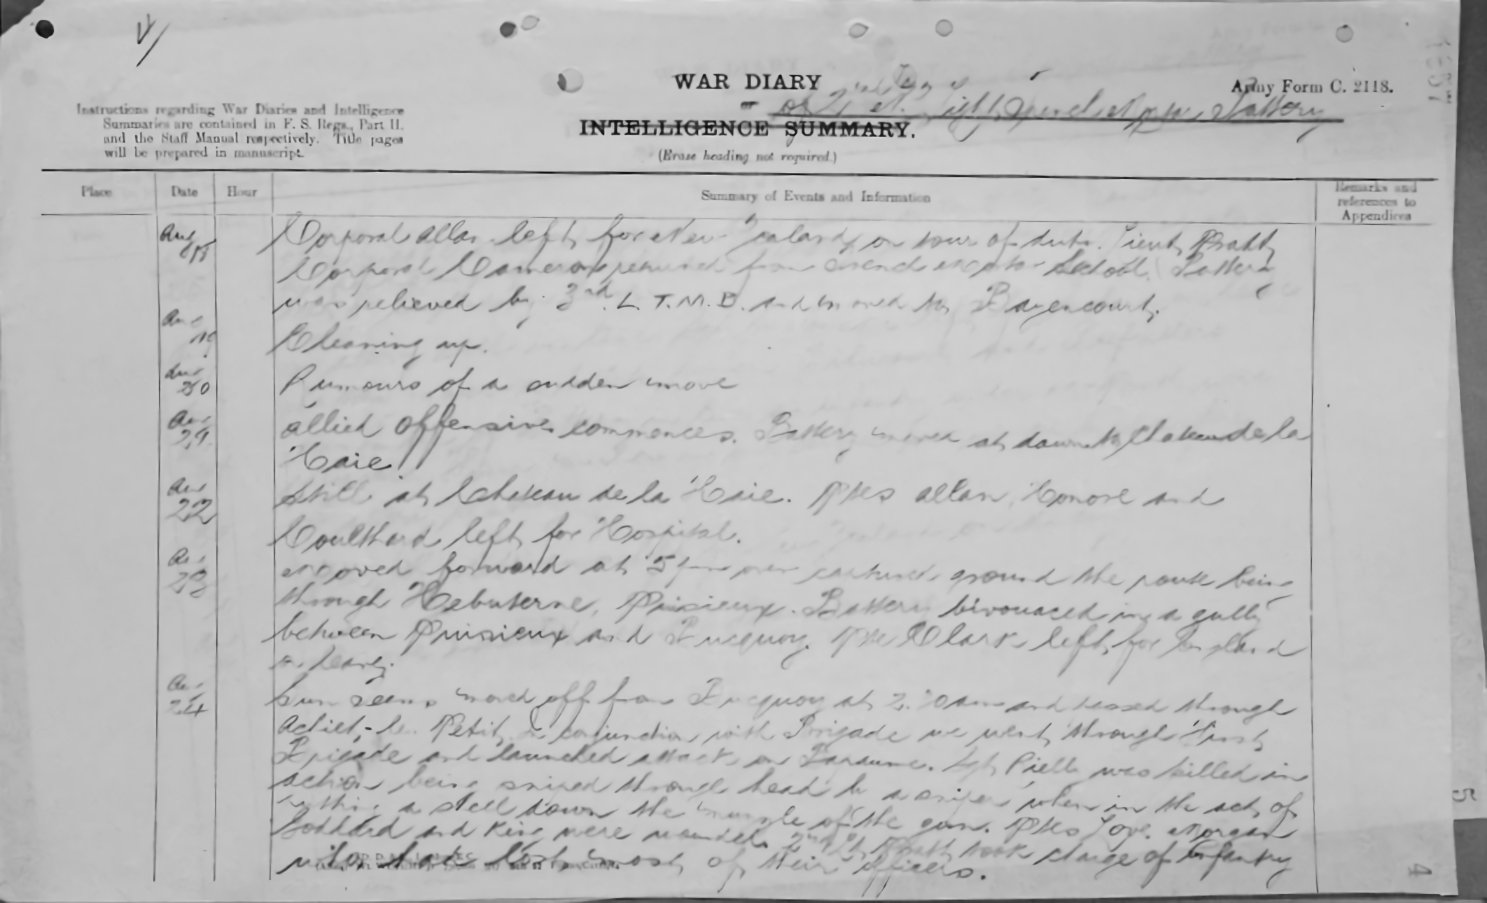 WAR DIARY
or
of 2nd N.Z. Light Trench Mortar Battery
Army Form C. 2118.
INTELLIGENCE SUMMARY.
(Erase heading not required.)
Instructions regarding War Diaries and Intelligence
Summaries are contained in F. S. Regs., Part II.
and the Staff Manual respectively. Title pages
will be prepared in manuscript.
Place Date Hour Summary of Events and Information Remarks and references to Appendices
Aug 18 Corporal Allan left for New Zealand on tour of duty. Lieut Pratt
Corporal Cameron returned from Trench Mortar School. Battery
was relieved by 3rd. L.T.M.B. and moved to Bayencourt.
Aug 19 Cleaning up.
Aug 20 Rumours of a sudden move
Aug 21 Allied Offensive commences. Battery moved at dawn to Chateau de la
Haie
Aug 22 Still at Chateau de la Haie. Ptes Allan, Honore and
Coulthard left for Hospital.
Aug 23 Moved forward at 5 pm over captured ground the route being
through Hebuterne, Puisieux. Battery bivouaced in a gully
between Puisieux and Bucquoy. Pte Clark left for England
on leave.
Aug 24 Gun teams moved off from Bucquoy at 2. am and passed through
Achiet-le-Petit, in conjunction with Brigade we went through First
Brigade and launched attack on Bapaume. Sgt was killed in
action being sniped through head by a sniper when in the act of
putting a shell down the muzzle of the gun. Ptes Love, Morgan
Goddard and King were wounded. 2nd Lt Pratt took charge of infantry
who had lost most of their officers.